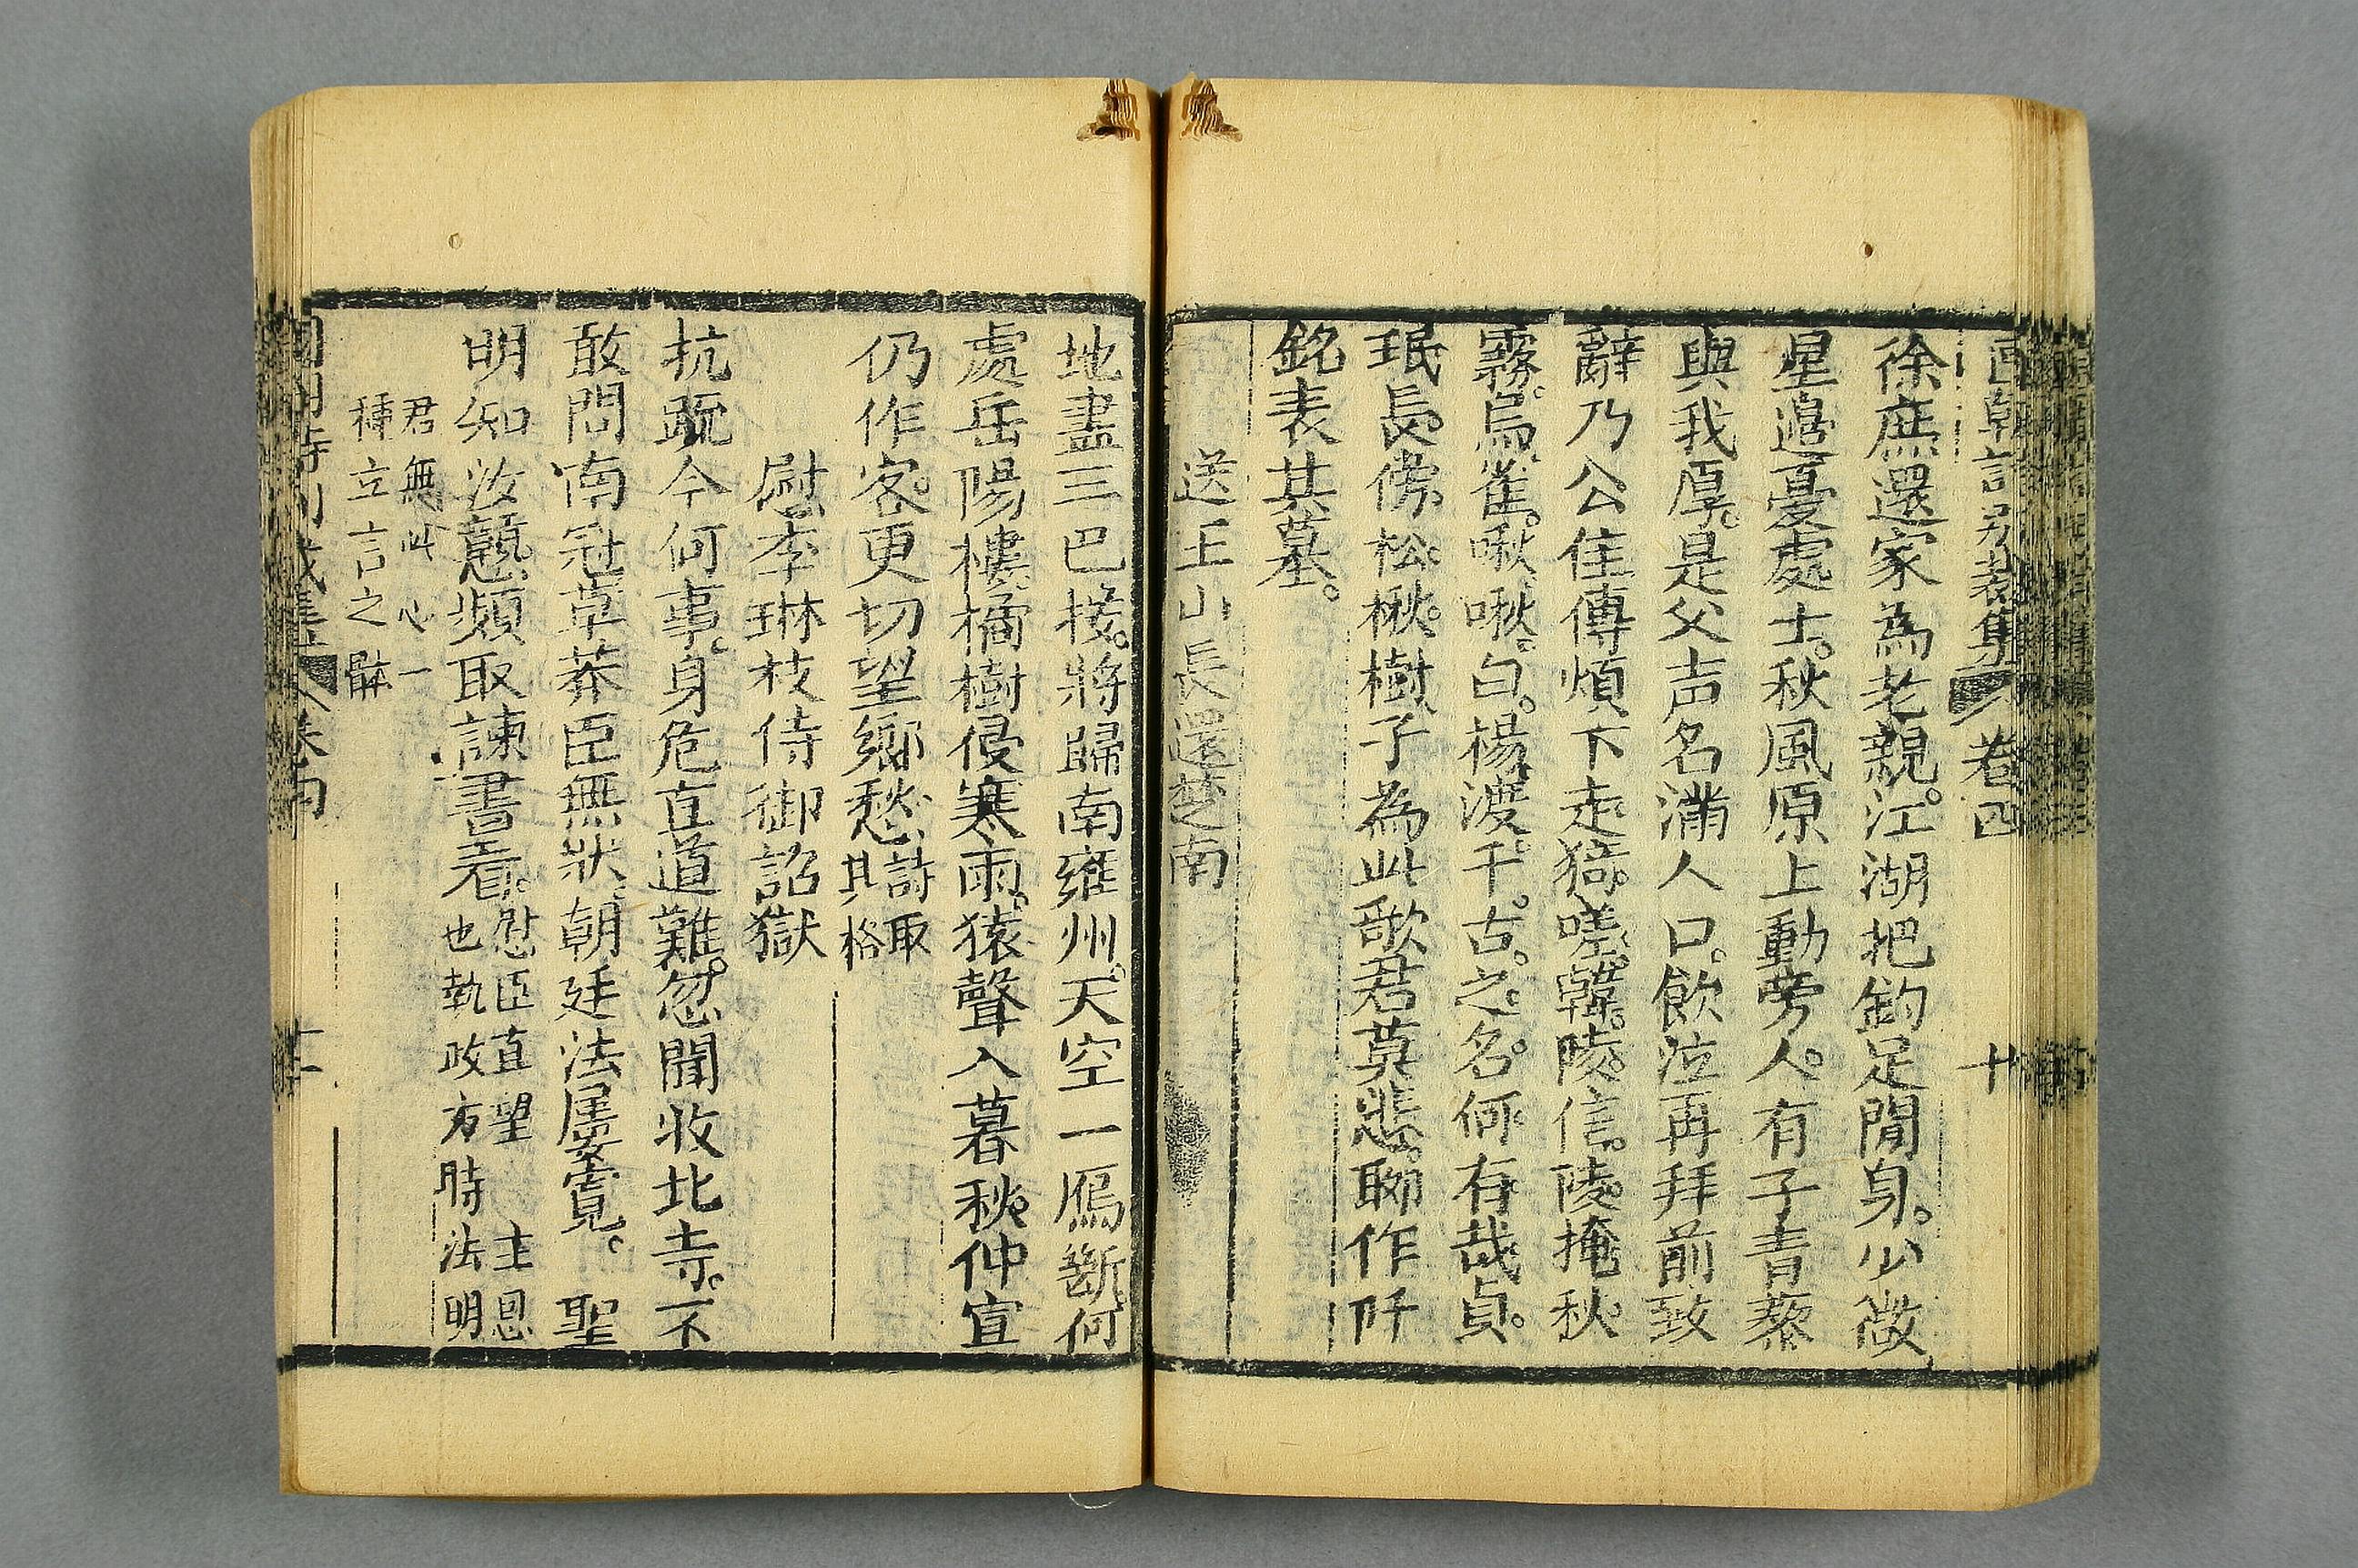 卷四 十
徐庶還家為老親。江湖把釣足閒身。少微
星邉憂處士。秋風原上動旁人。有子青藜
與我厚。是父声名滿人口。飲泣再拜前致
辭乃公佳傳煩下走。猗嗟韓陵信陵掩秋
霧。烏雀啾啾白楊渡。千古之名何有哉貞
珉長傍松楸樹子為此歌君莫悲。聊作阡
銘表其墓。
送王山長還楚南
地盡三巴接。將歸南雍州。天空一鴈斷。何
處岳陽樓。橘樹侵寒雨。猿聲入暮秋。仲宣
仍作客。更切望鄉愁 詩取
其格
慰李琳枝侍御詔獄
抗疏今何事。身危直道難。忽聞收北寺。不
敢問南冠。草莽臣無狀。朝廷法屢寬。 聖
明知汝戇。頻取諫書看。 慰臣直望 主恩
也執政方時法明
君無此心一
種立言之體
卷四 十一